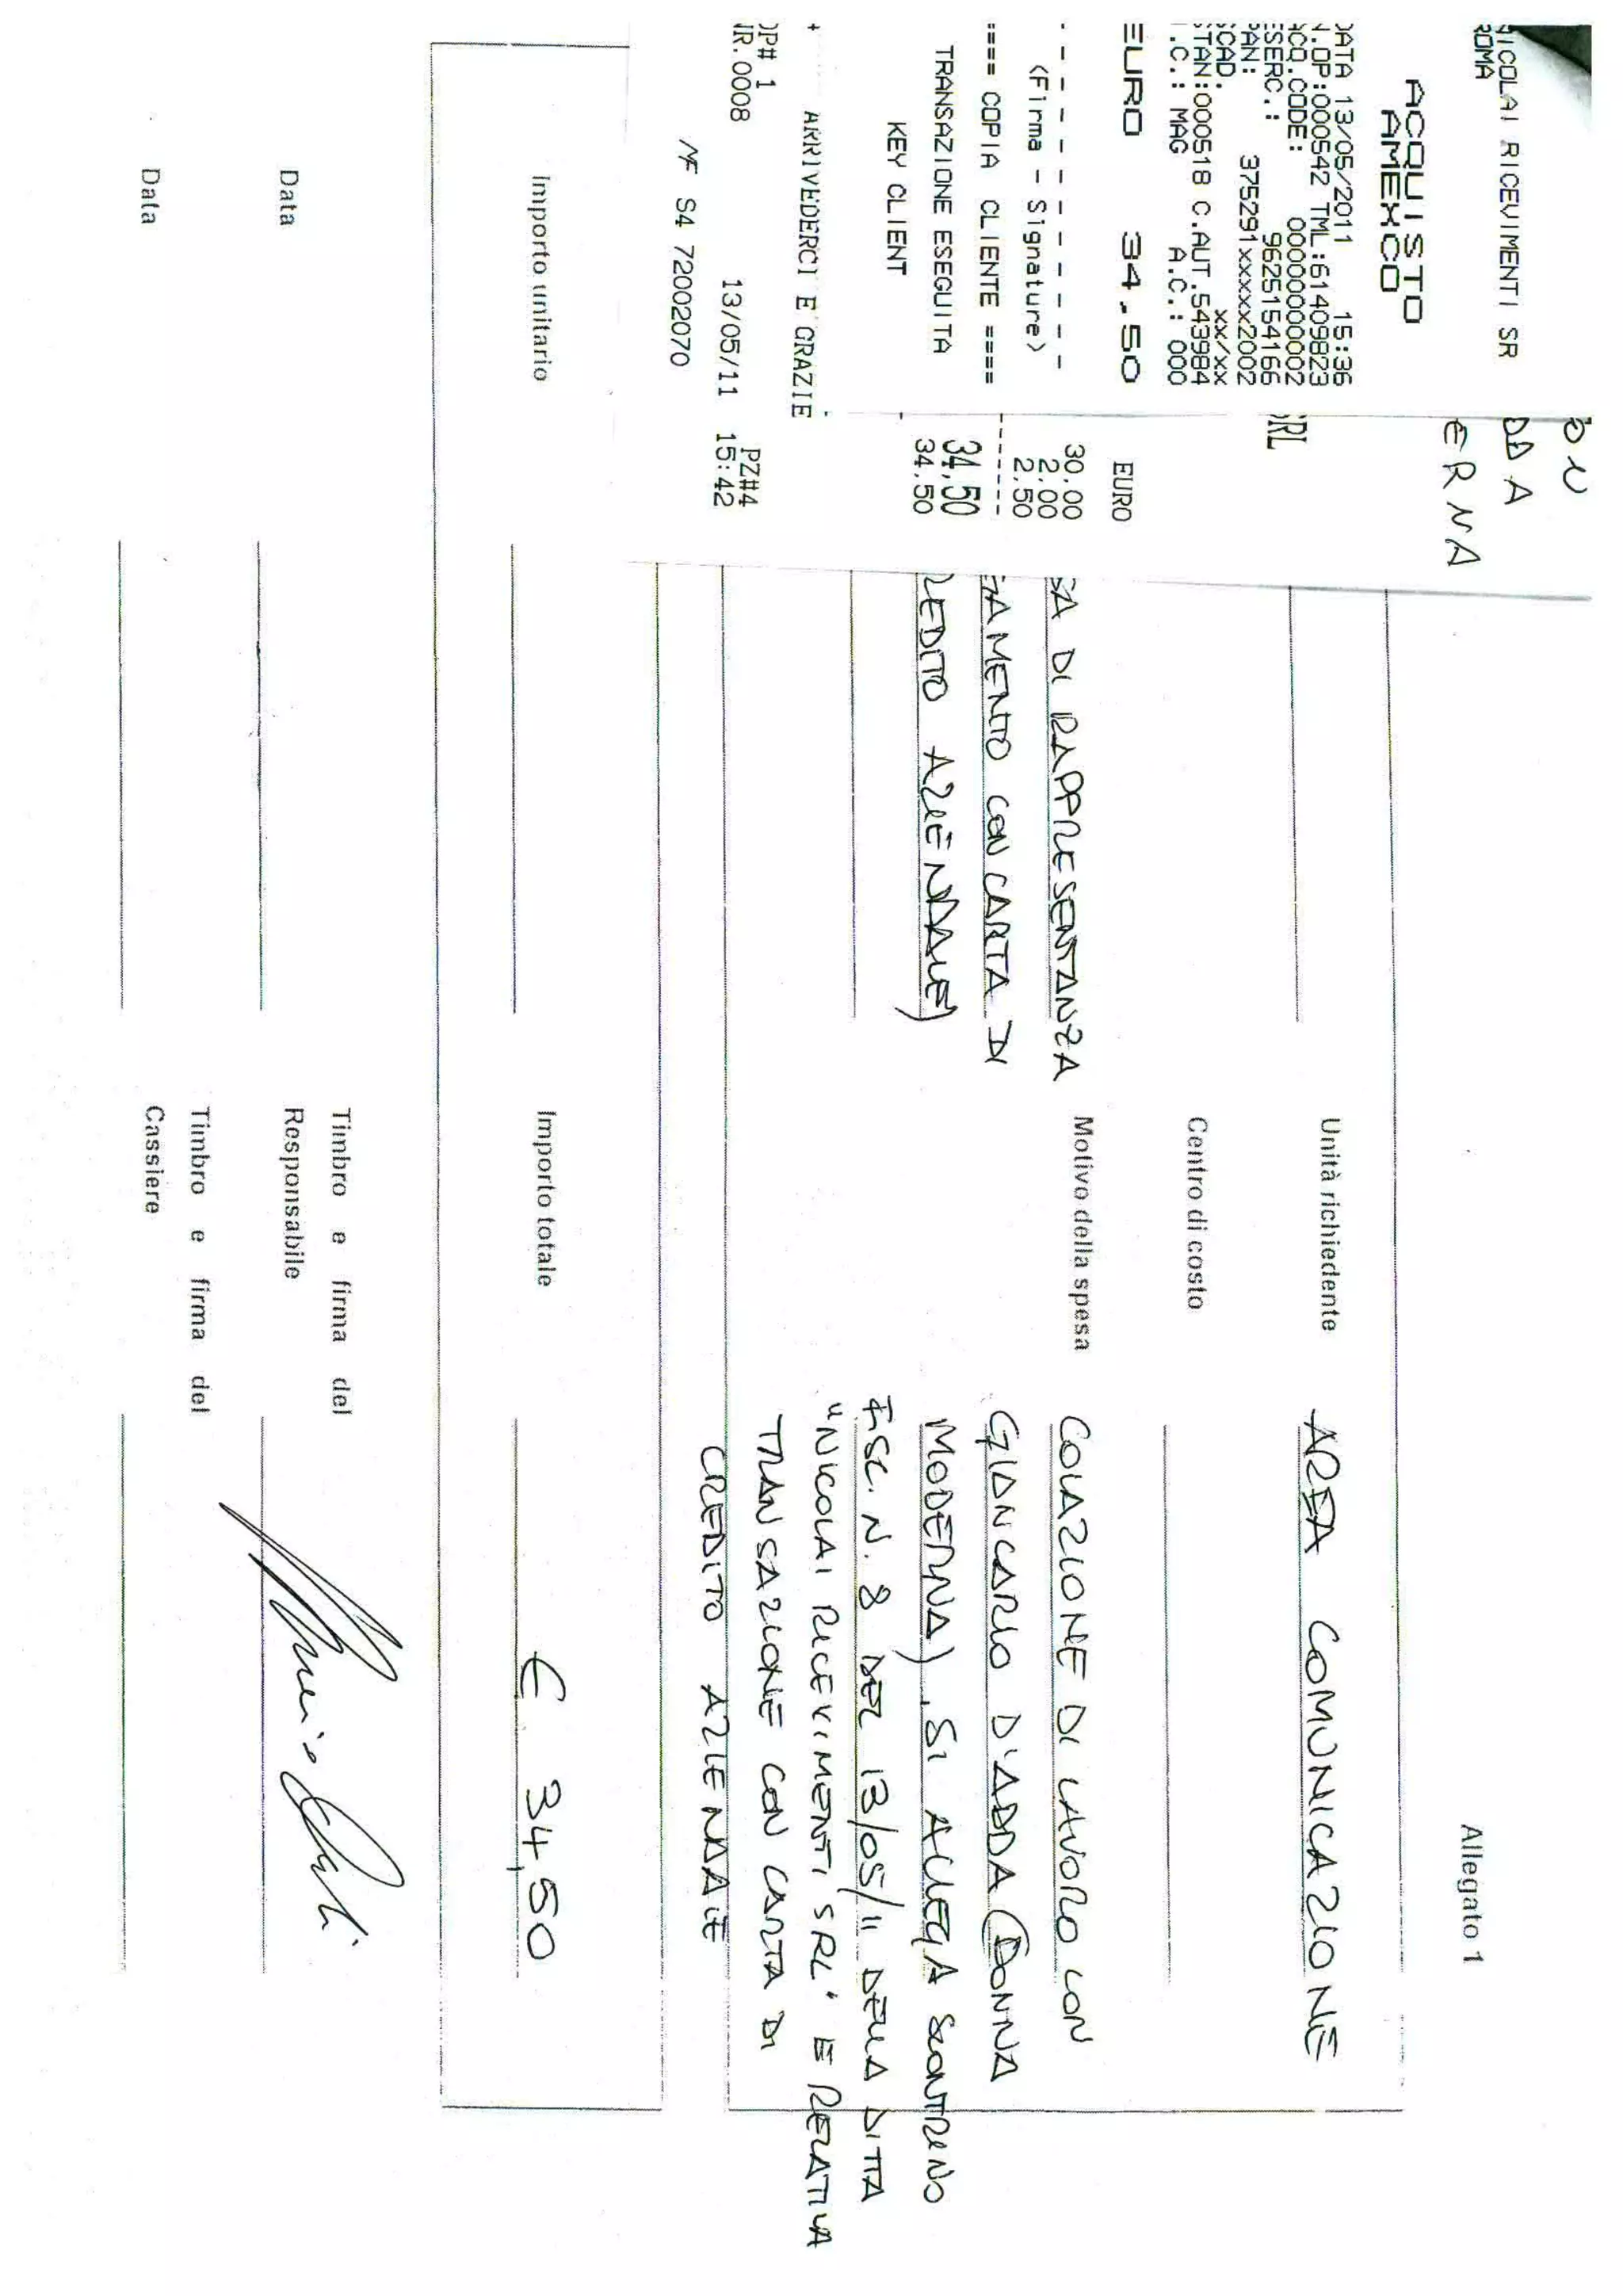 Allegato 1
NICOLAI RICEVIMENTI SR
ROMA
ACQUISTO
AMEXCO
DATA 13/05/2011 15:36
N.OP:000542 TML:61409823
ACQ.CODE: 00000000002
ESERC.: 9625154166
PAN: 375291xxxxx2002
SCAD. xx/xx
STAN:000518 C.AUT.543984
I.C.: MAG A.C.: 000
EURO 34,50
(Firma - Signature)
==== COPIA CLIENTE ====
TRANSAZIONE ESEGUITA
KEY CLIENT
DDA
ERNA
SRL
EURO
30,00
2,00
2,50
34,50
34,50
ARRIVEDERCI E GRAZIE
OP# 1 PZ#4
NR.0008 13/05/11 15:42
MF S4 72002070
SA DI RAPPRESENTANZA
GAMENTO CON CARTA DI
REDITO AZIENDALE)
Unità richiedente AREA COMUNICAZIONE
Centro di costo
Motivo della spesa COLAZIONE DI LAVORO CON
GIANCARLO D'ADDA (DONNA
MODERNA). SI ALLEGA SCONTRINO
FISC. N. 8 DEL 13/05/11 DELLA DITTA
"NICOLAI RICEVIMENTI SRL" E RELATIVA
TRANSAZIONE CON CARTA DI
CREDITO AZIENDALE
Importo unitario
Importo totale € 34,50
Data
Timbro e firma del
Responsabile
Data
Timbro e firma del
Cassiere